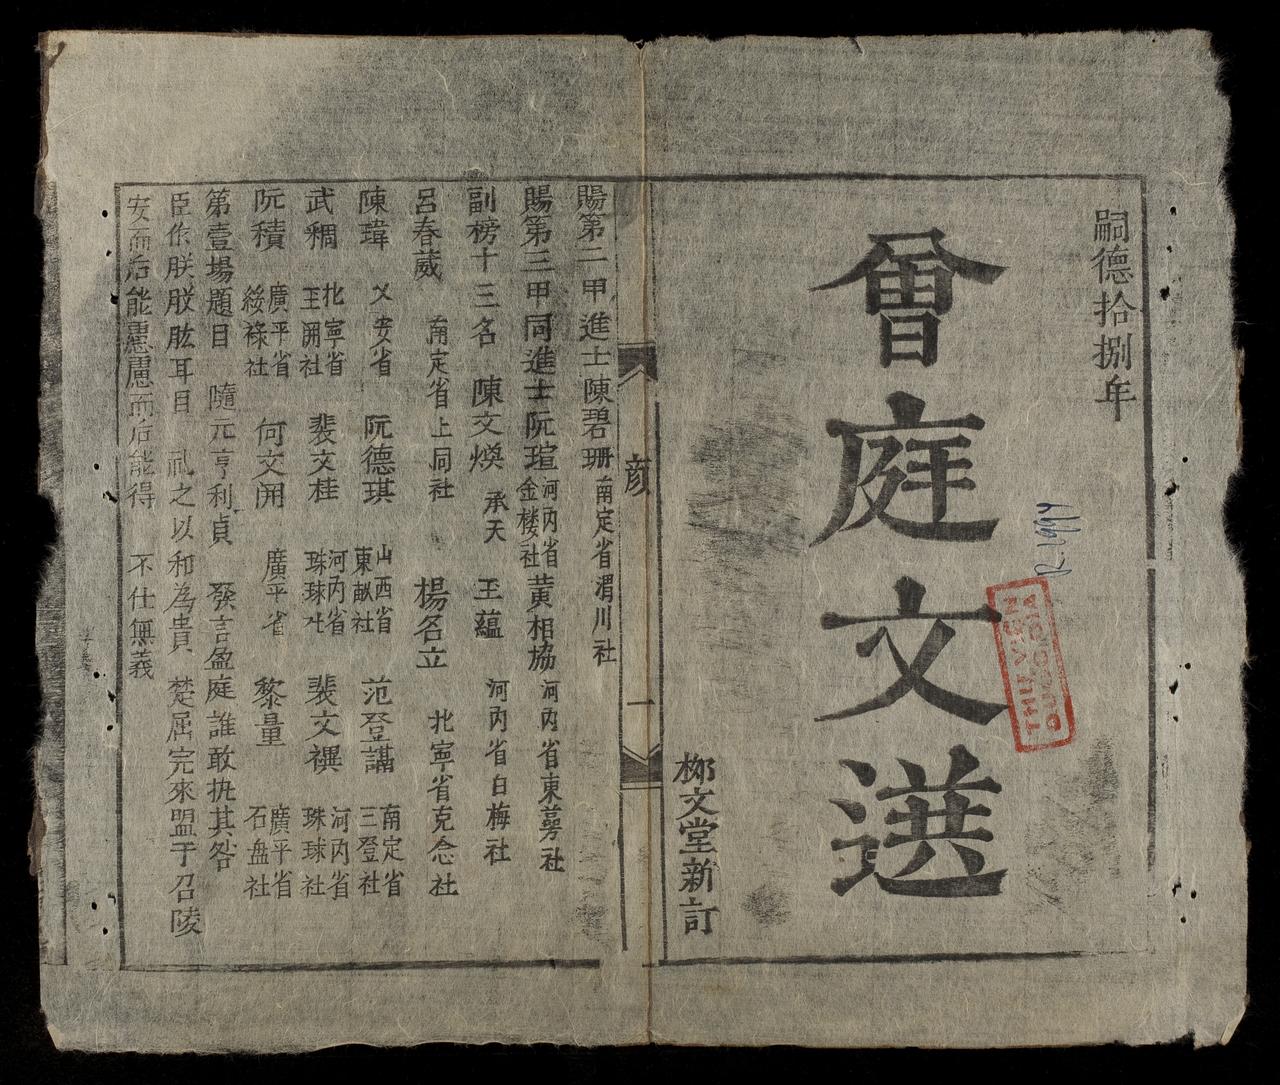 嗣德拾捌年
會庭文選
THƯ VIỆN
QUỐC GIA
柳文堂新訂
一
賜第二甲進士陳碧珊南定省渭川社
賜第三甲同進士阮瑄河內省金楼社黃相協河內省東蓦社
副榜十三名 陳文煥承天 王蘊河內省白梅社
呂春葳南定省上同社 楊名立北寧省克念社
陳瑋乂安省 阮德琪山西省東畝社 范登講南定省三登社
武稠北寧省王開社 裴文桂河內省珠球社 裴文禩河內省珠球社
阮積廣平省綏祿社 何文開廣平省 黎量廣平省石盘社
第壹場題目 隨元亨利貞 發言盈庭誰敢执其咎
臣作朕股肱耳目 礼之以和為貴 楚屈完來盟于召陵
安而后能慮慮而后能得 不仕無義